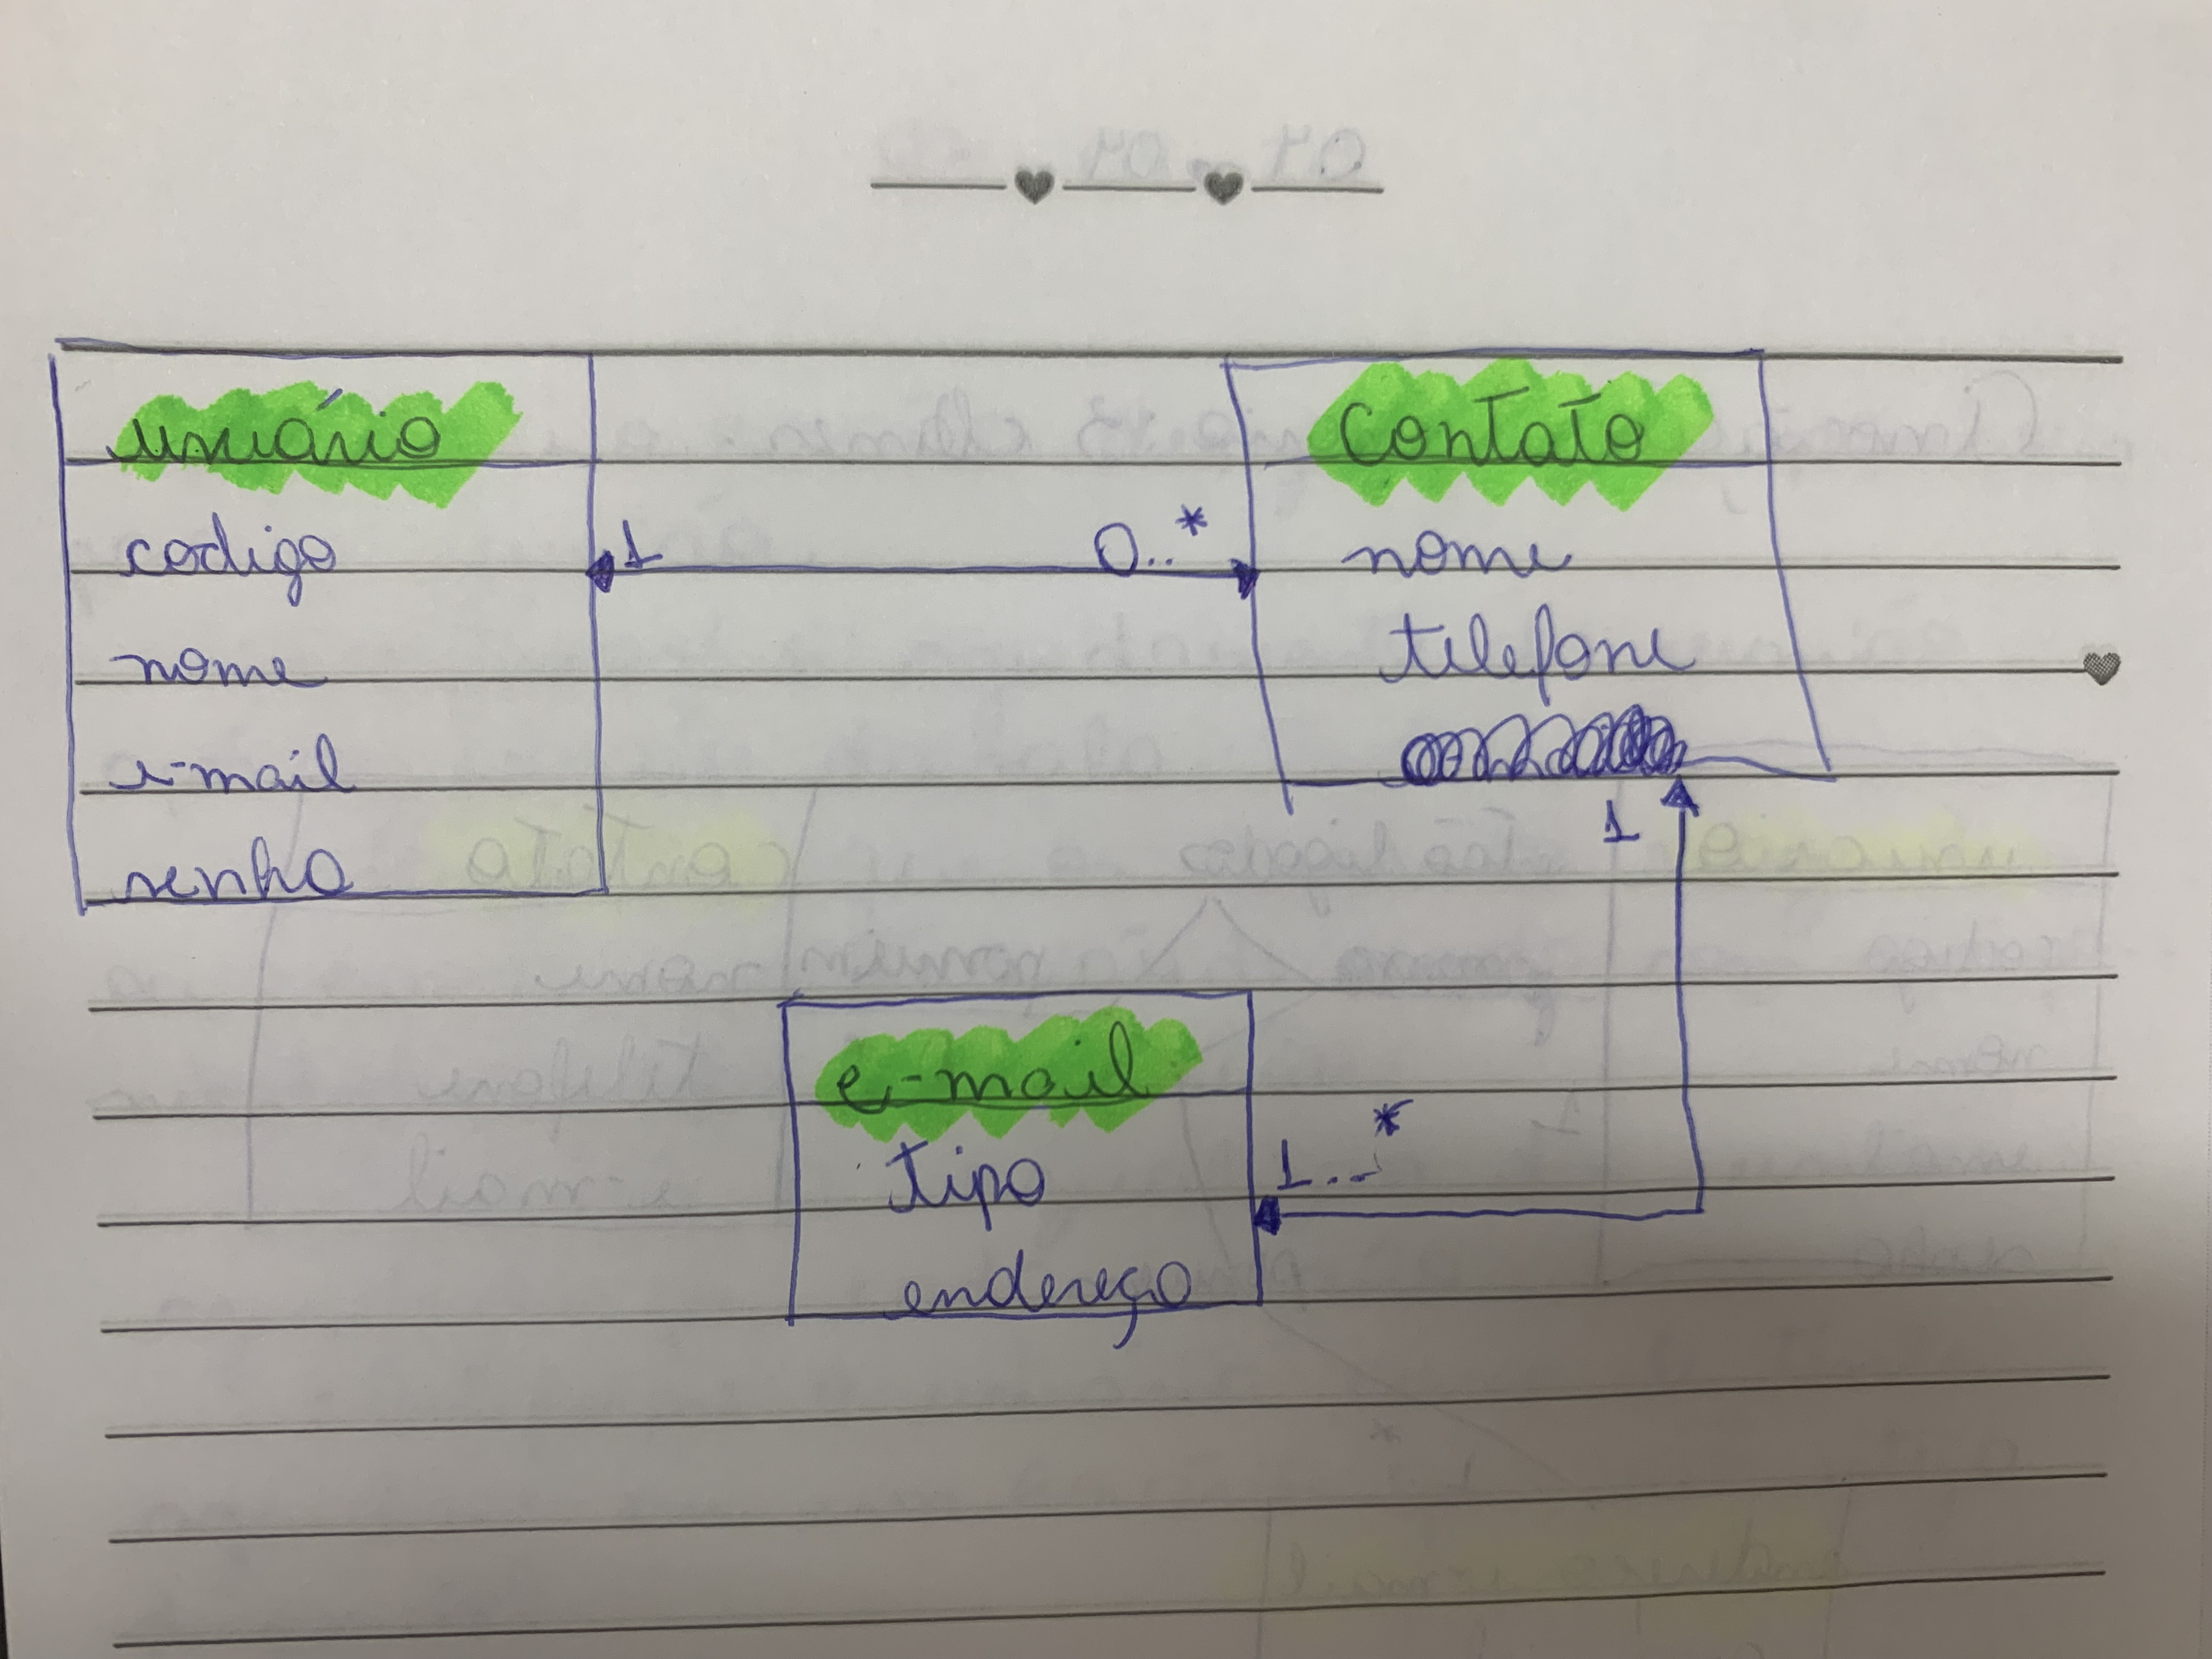 usuário
codigo
nome
e-mail
senha
1
0...*
Contato
nome
telefone
1
e-mail
tipo
endereço
1...*